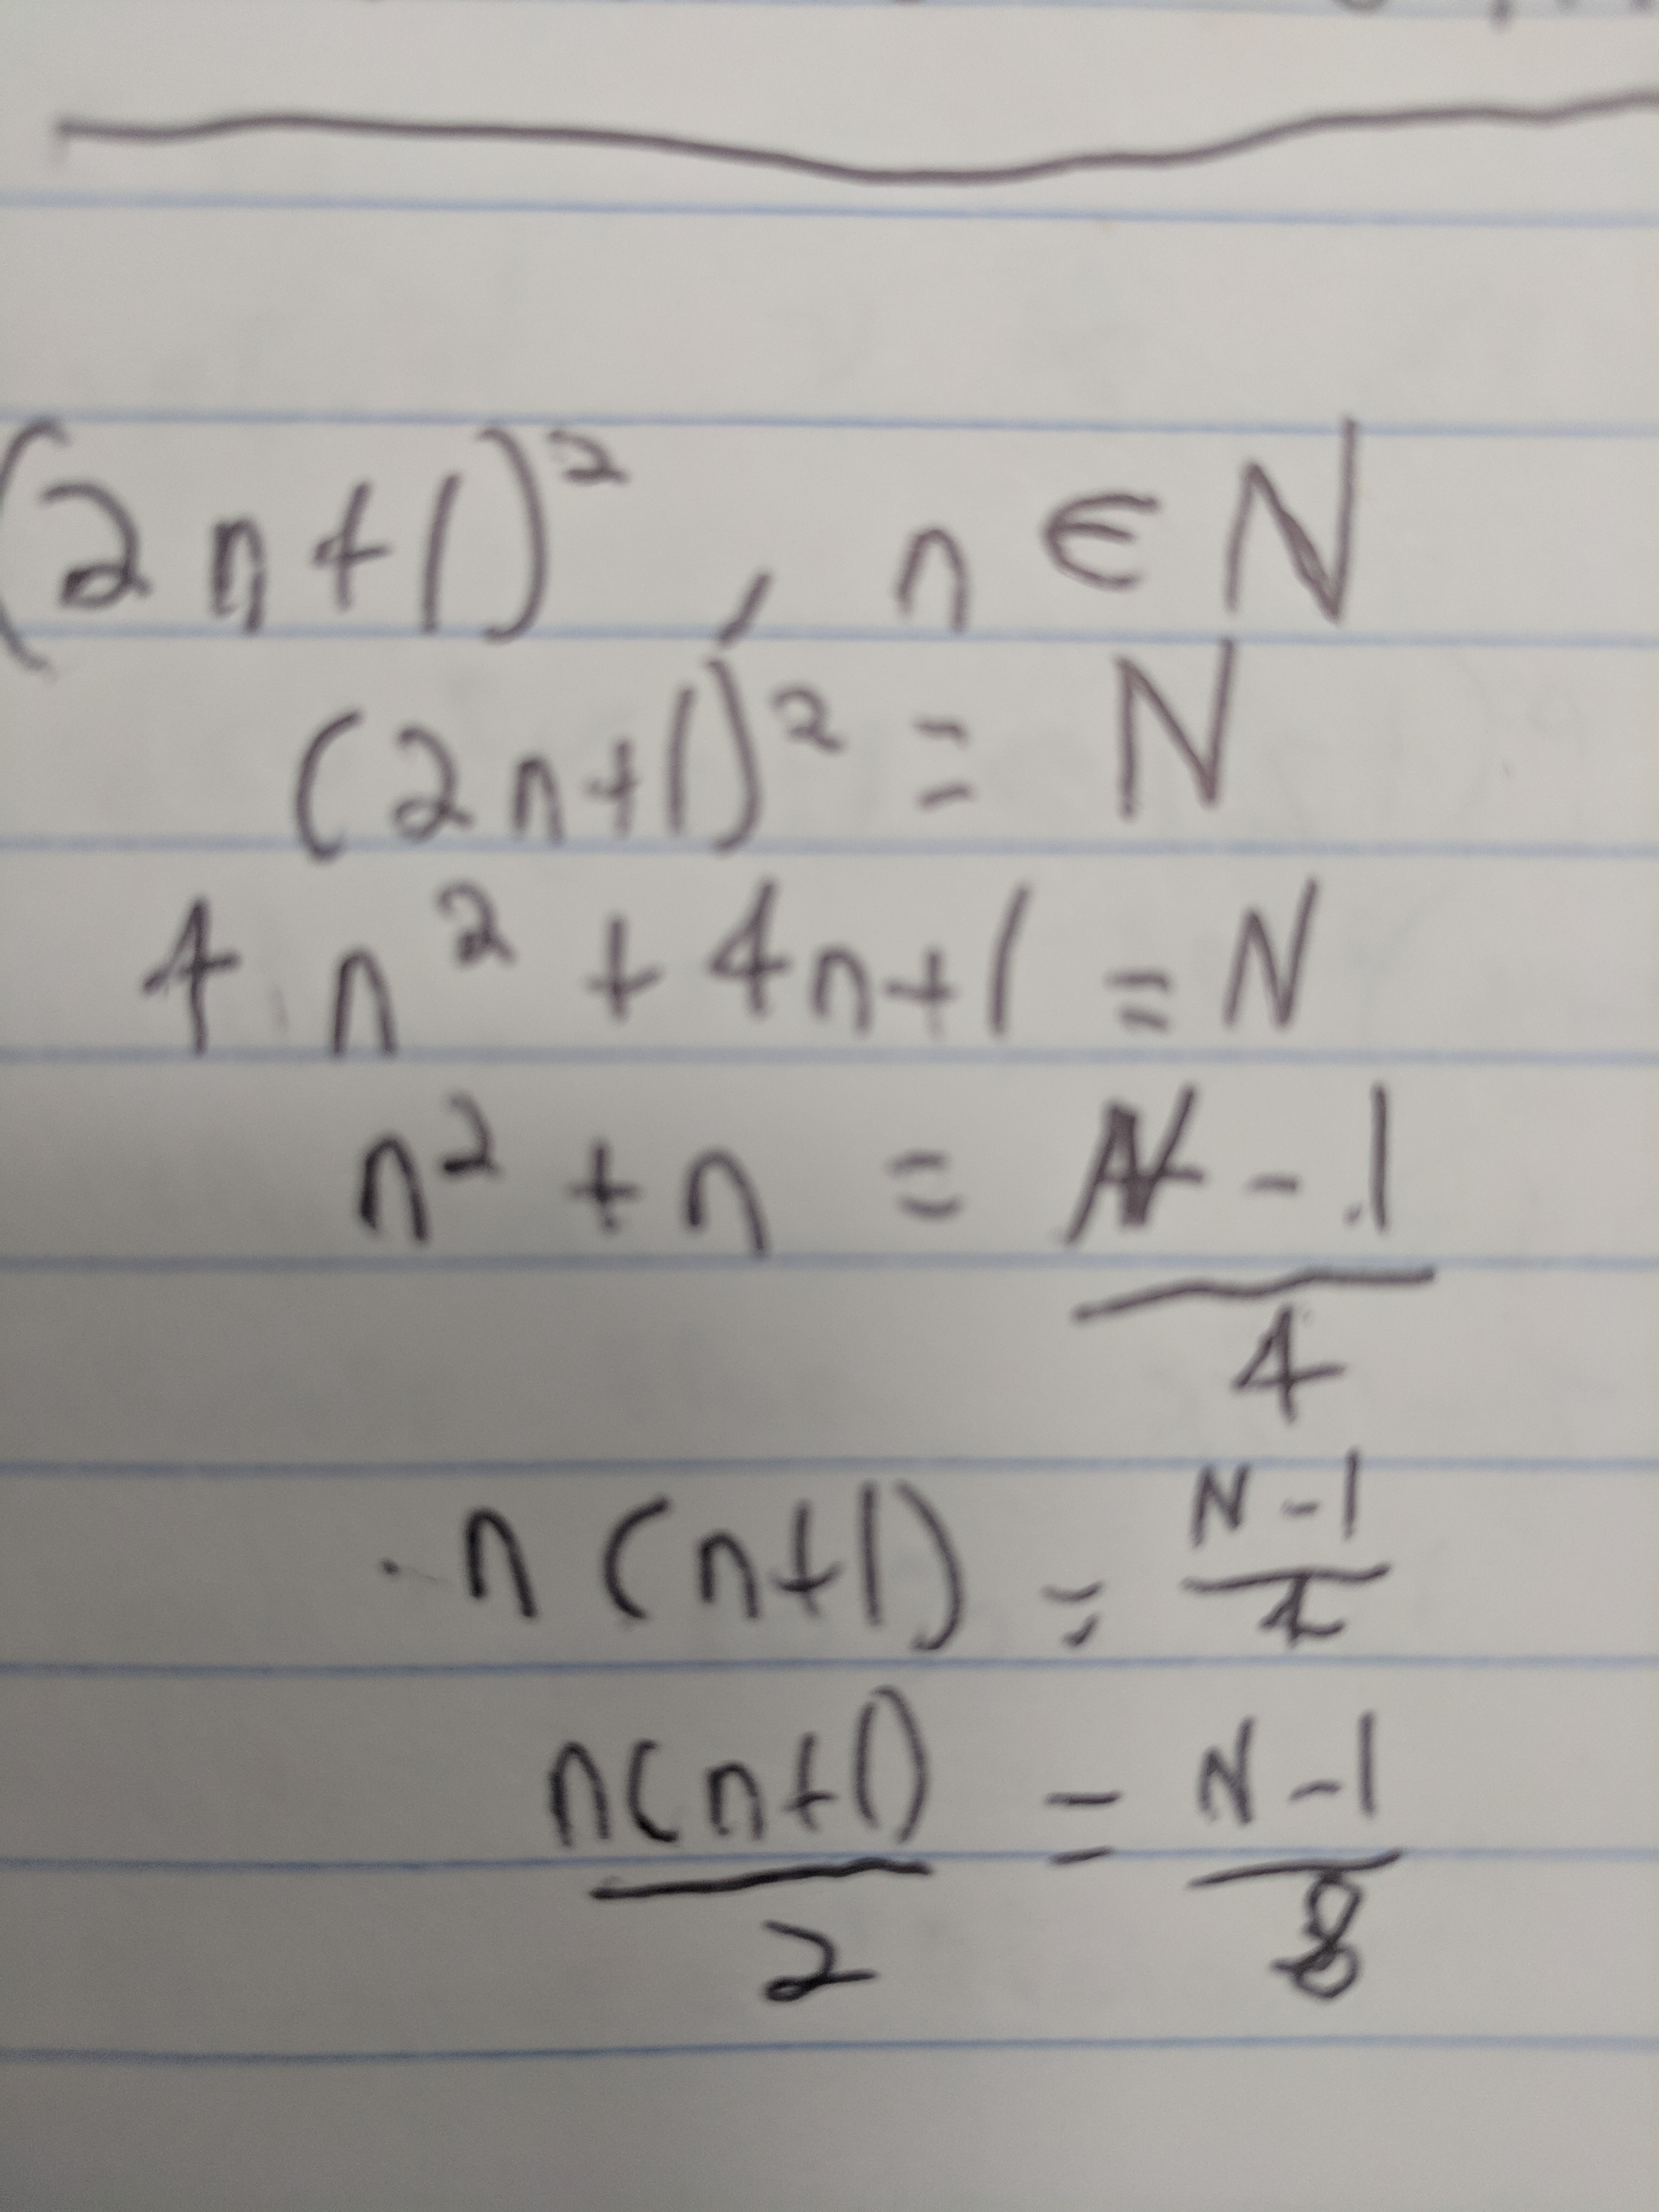 (2n+1)², n ∈ N
(2n+1)² = N
4n² + 4n+1 = N
n² + n = N - 1
4
n(n+1) = N-1
4
n(n+1) = N-1
2 8